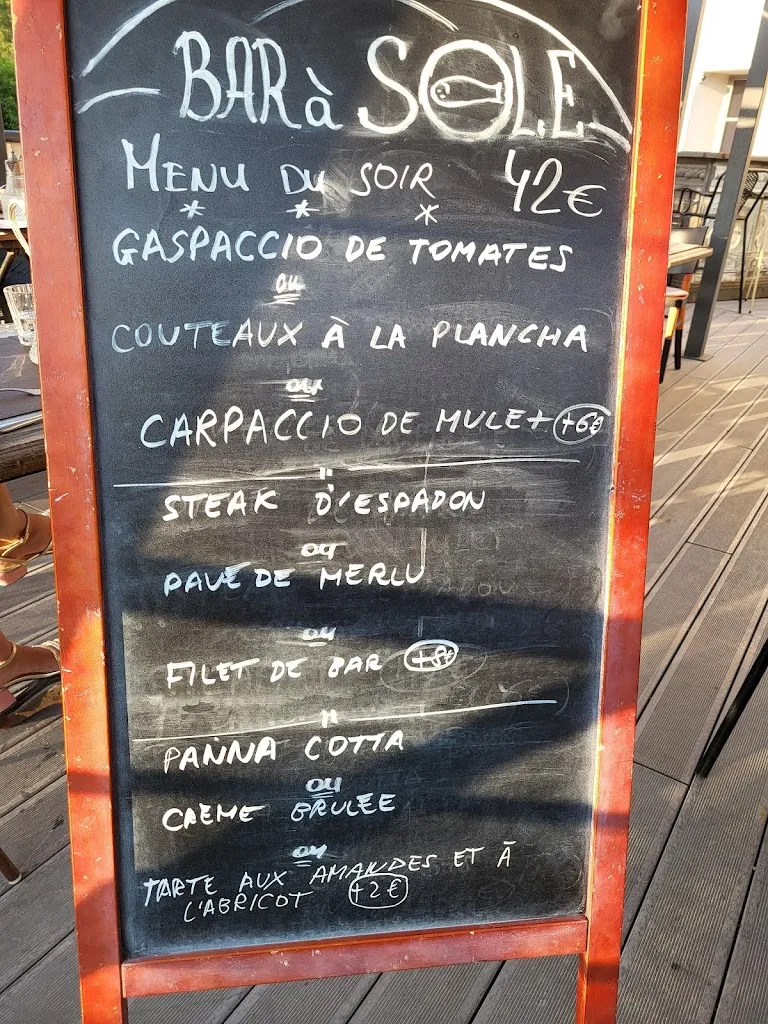 BAR à SOLE
MENU DU SOIR 42€
* * *
GASPACCIO DE TOMATES
ou
COUTEAUX À LA PLANCHA
ou
CARPACCIO DE MULET +6€
"
STEAK D'ESPADON
ou
PAVÉ DE MERLU
ou
FILET DE BAR +8€
"
PANNA COTTA
ou
CREME BRULEE
ou
TARTE AUX AMANDES ET À
L'ABRICOT +2€